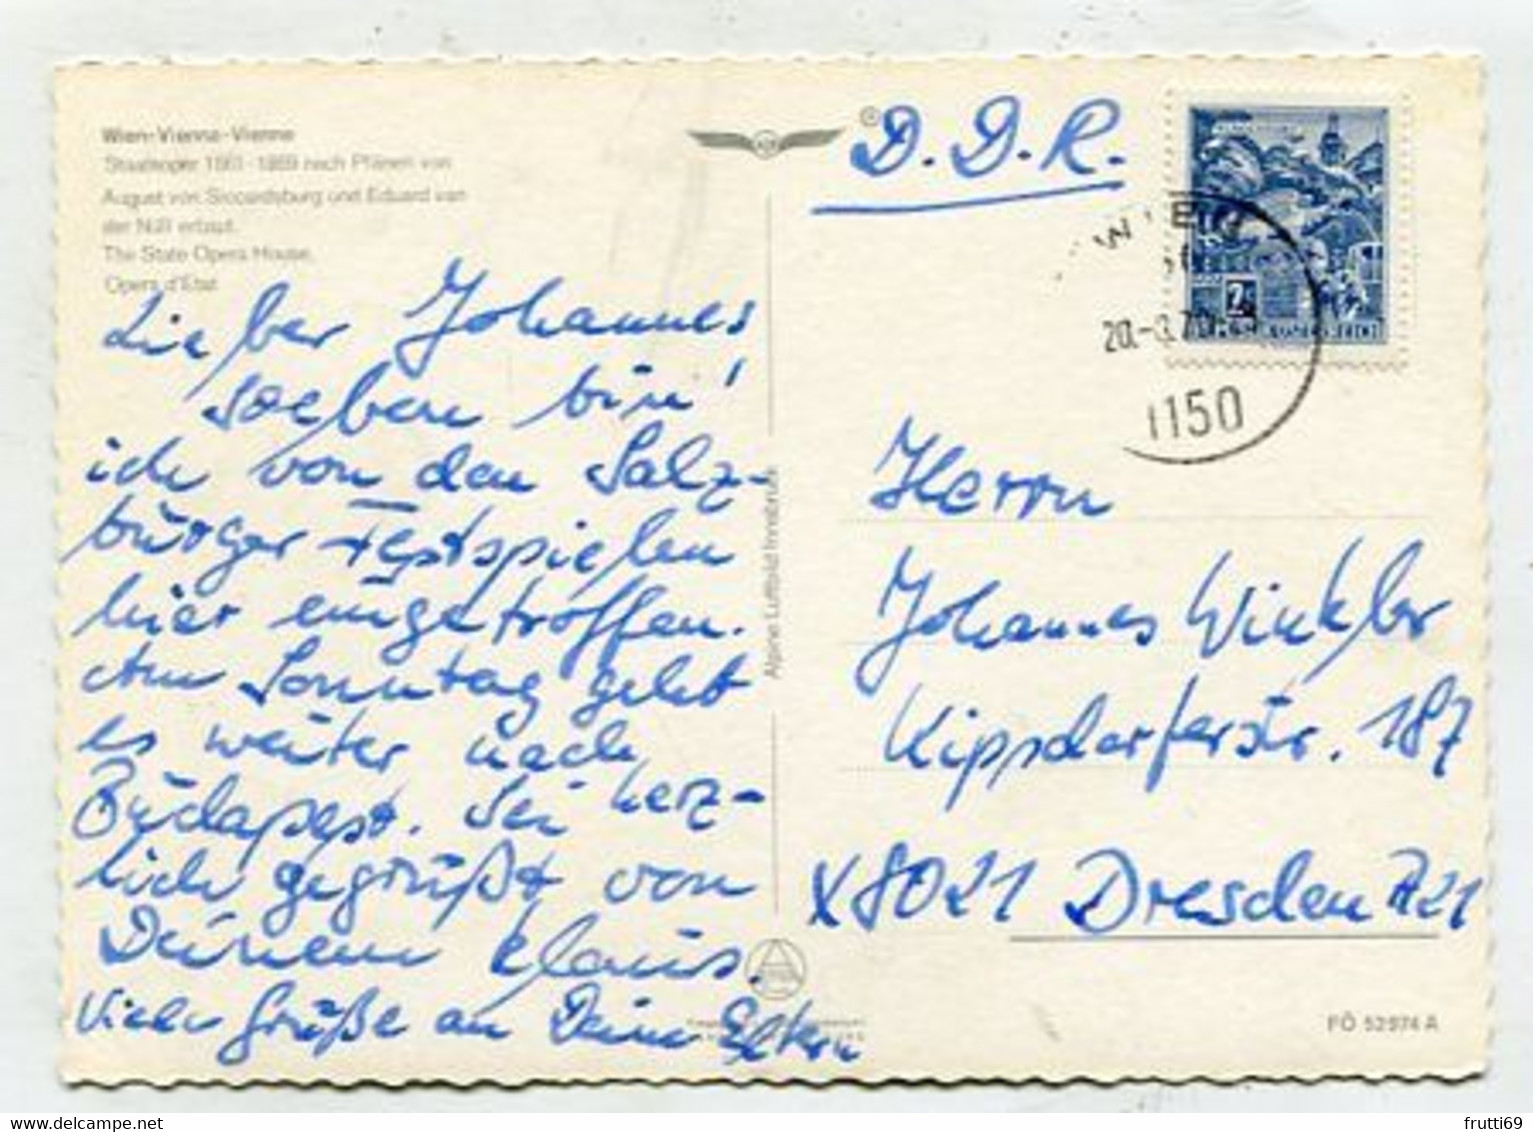 Wien-Vienna-Vienne
Staatsoper 1861-1869 nach Plänen von
August von Siccardsburg und Eduard van
der Nüll erbaut.
The State Opera House.
Opera d'Etat
Lieber Johannes!
soeben bin
ich von den Salz-
burger Festspielen
hier eingetroffen.
Am Sonntag geht
es weiter nach
Budapest. Sei herz-
lich gegrüßt von
Deinem Klaus.
Viele Grüße an Deine Eltern
Alpine Luftbild Innsbruck
D.D.R.
WIEN
1150
2
Herrn
Johannes Winkler
Kippsdorferstr. 187
X8021 Dresden A21
FÖ 52974 A
www.delcampe.net
frutti69